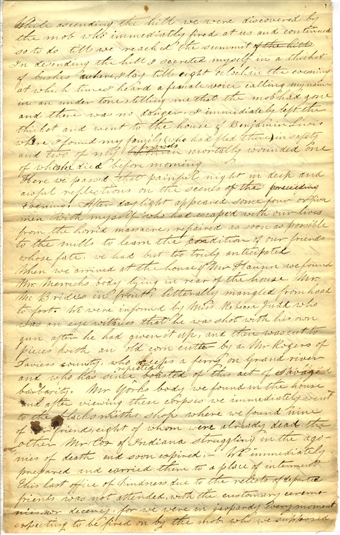 While ascending the hill we were discovered by
the mob who immediately fired at us and continued
so to do till we reached the summit of the hill
In desending the hill I secreted myself in a thicket
of bushes where I lay till eight oclock in the evening
at which time I heard a female voice calling my name
in an under tone telling me that the mob had gone
and there was no danger. I immediately left the
thicket and went to the house of Benjamin Lewis
where I found my family (who had fled there) in safety
and two of my friends mortally wounded one
of whom died before morning
Here we passed that painful night in deep and
awful reflections on the scenes of the preceeding
evening. After day light appeared some four or five
men with myself who had escaped with our lives
from the horrid massacre repaired as soon as possible
to the mills to learn the condition of our friends
whose fate we had but too truly anticipated
When we arrived at the house of Mr Haun we found
Mr Merricks body lying in rear of the house Mr
Mc Brides in front litterally mangled from head
to foot. We were informed by Miss Rebecca Judd who
was an eye witness that he was shot with his own
gun after he had given it up, and then was cut to
pieces with an old corn cutter by a Mr Rogers of
Davess county who keeps a ferry on Grand river
and who has since repeatedly boasted of this act of savage
barbarity. Mr Yorks body we found in the house
and after viewing these corpses we immediately went
to the blacksmiths shop where we found nine
of our friends eight of whom were already dead the
other Mr Cox of Indiana struggling in the ago-
nies of death and soon expired. We immediately
prepared and carried them to a place of interment
This last office of kindness due to the relicts of departed
friends was not attended with the customary ceremo-
nies nor decency for we were in jeopardy every moment
expecting to be fired on by the mob who we supposed